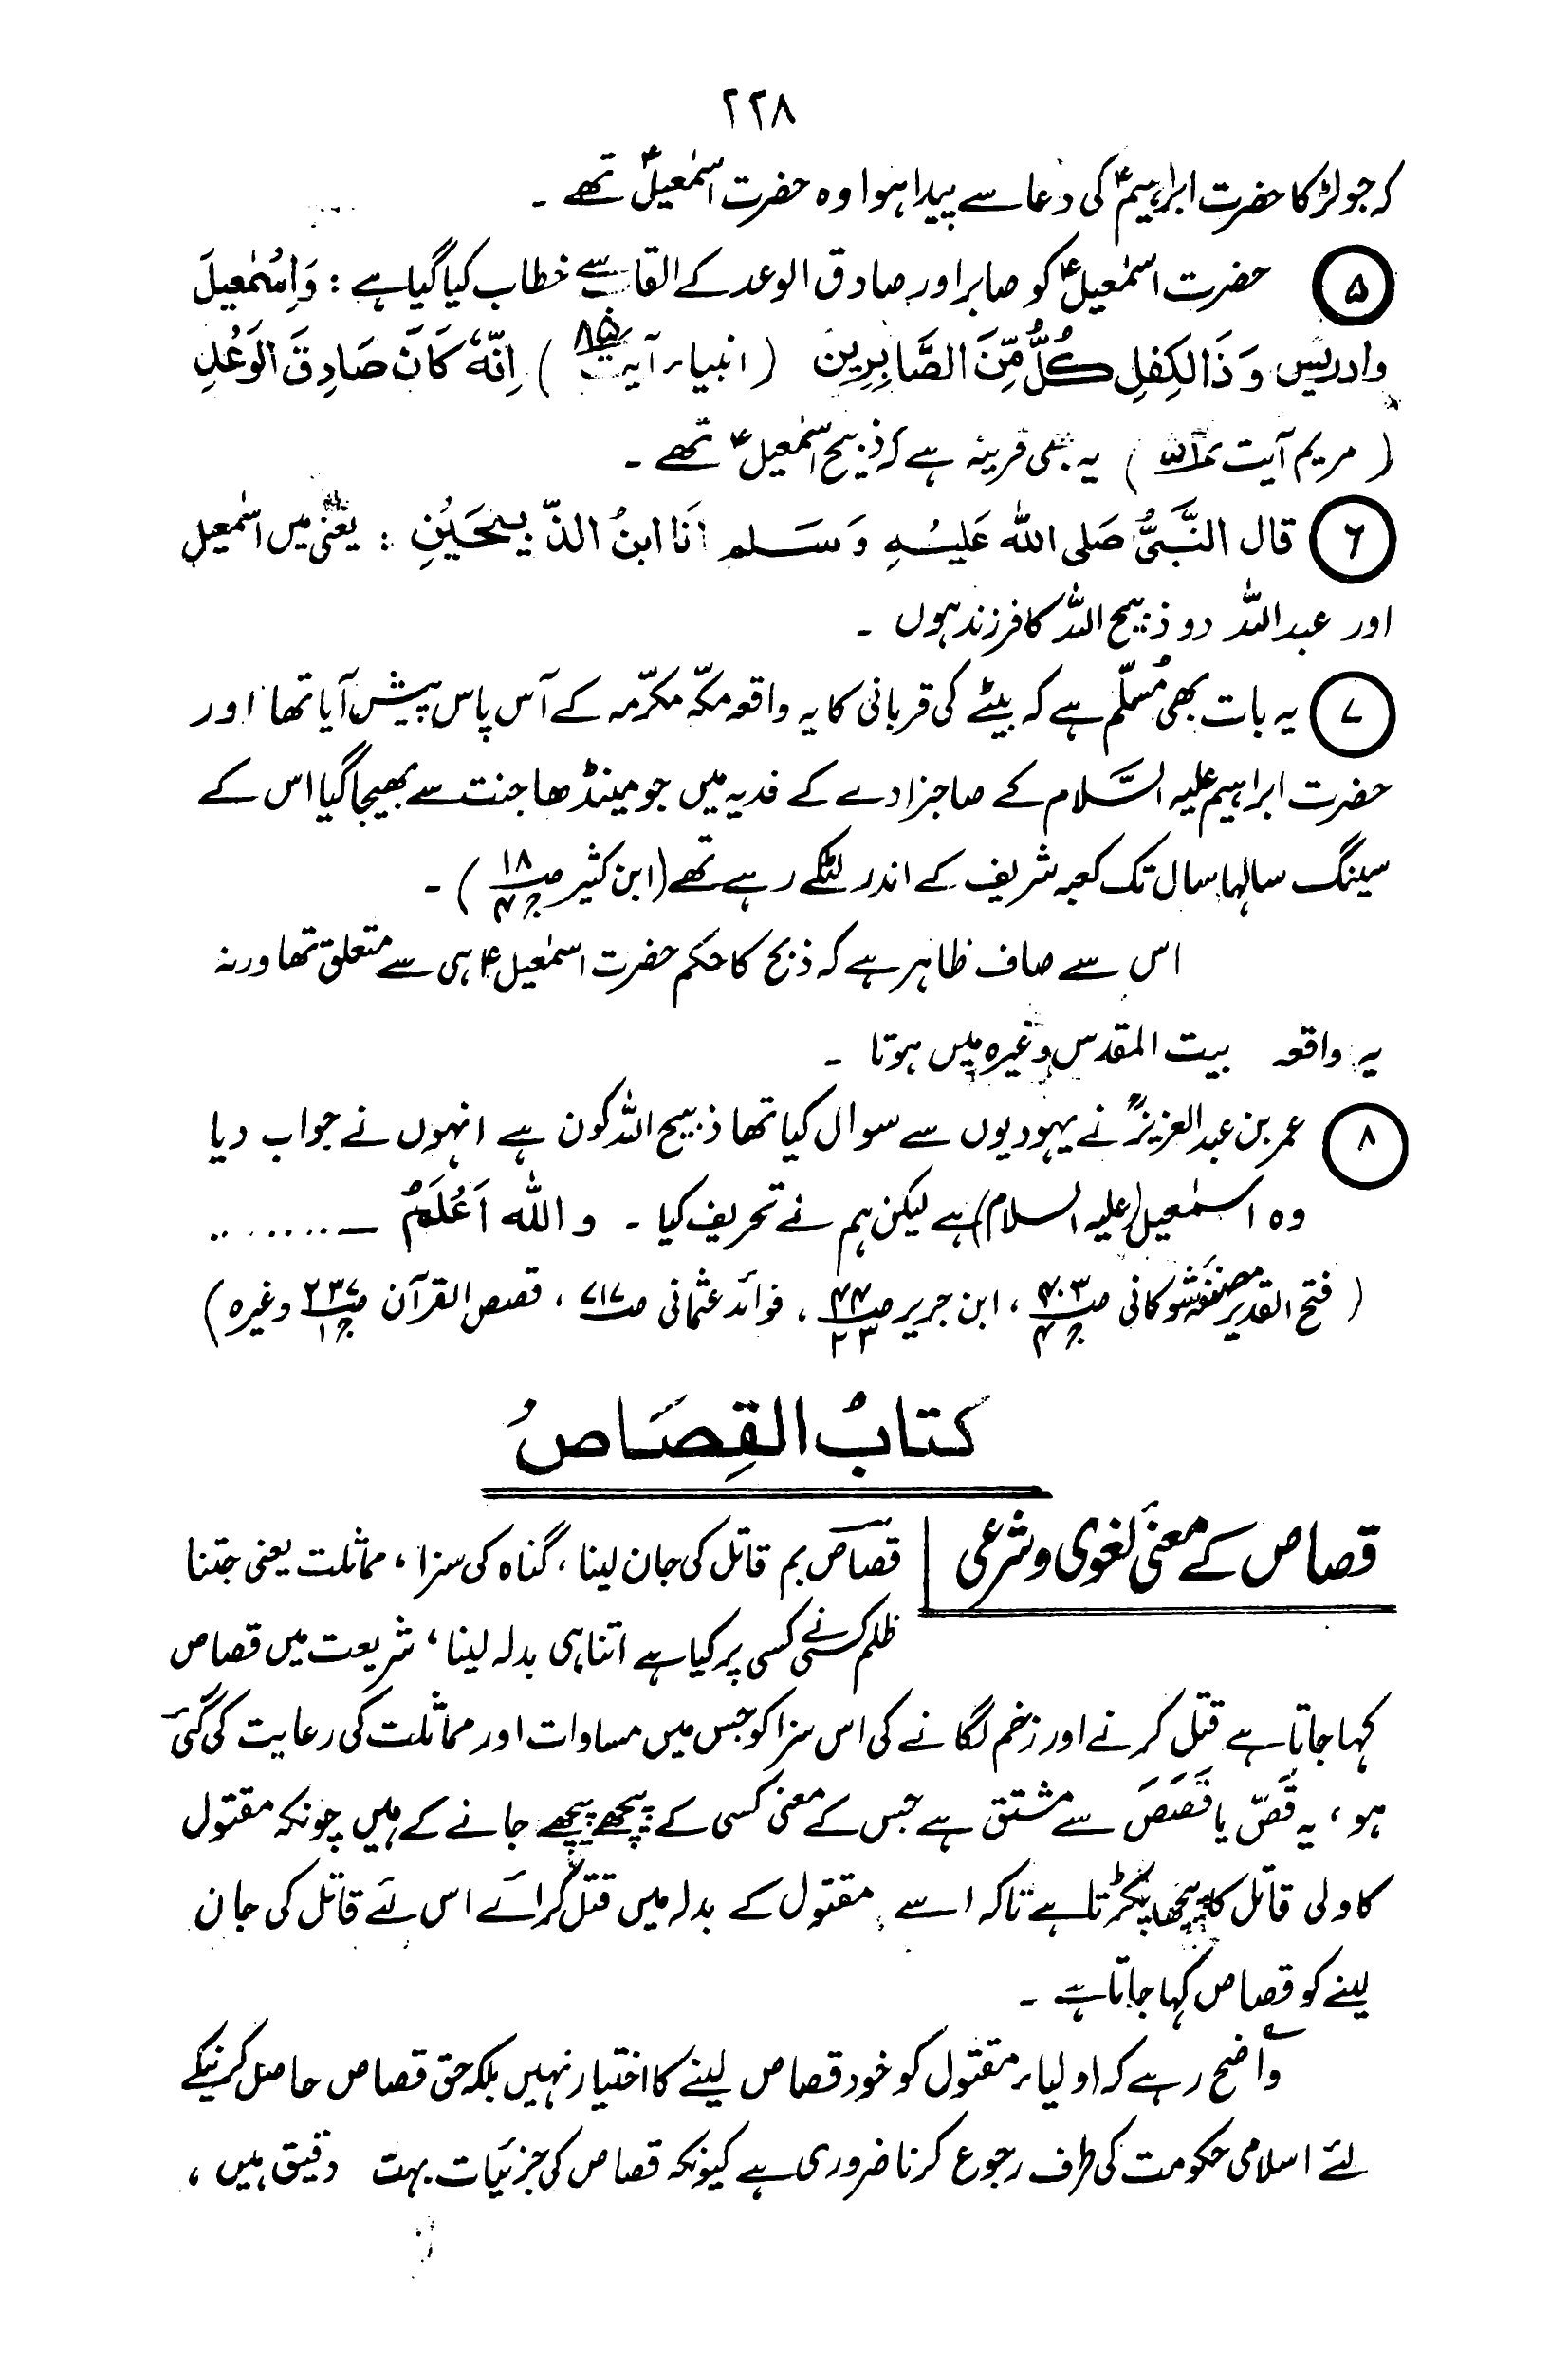 ۲۲۸
کہ جو لڑکا حضرت ابراہیمؑ کی دعا سے پیدا ہوا وہ حضرت اسمٰعیلؑ تھے ۔
۵ حضرت اسمٰعیلؑ کو صابر اور صادق الوعد کے القاب سے خطاب کیا گیا ہے : وَاِسْمٰعِیلَ
وادریس وَذَا الکِفلِ کُلٌّ مِّنَ الصَّابِرِین ( انبیاء آیت ۸۵ ) اِنَّہٗ کَانَ صَادِقَ الوَعْدِ
( مریم آیت ) یہ بھی قرینہ ہے کہ ذبیح اسمٰعیلؑ تھے ۔
۶ قال النَّبِیُّ صَلی اللہ عَلَیْہِ وَسَلم اَنَا ابنُ الذَّبِیحَیْنِ : یعنی میں اسمٰعیل
اور عبداللہ دو ذبیح اللہ کا فرزند ہوں ۔
۷ یہ بات بھی مُسلّم ہے کہ بیٹے کی قربانی کا یہ واقعہ مکّہ مکرّمہ کے آس پاس پیش آیا تھا اور
حضرت ابراہیم علیہ السَّلام کے صاحبزادے کے فدیہ میں جو مینڈھا جنت سے بھیجا گیا اس کے
سینگ سالہا سال تک کعبہ شریف کے اندر لٹکے رہے تھے (ابن کثیر ص۱۸ ج۴ ) ۔
اس سے صاف ظاہر ہے کہ ذبح کا حکم حضرت اسمٰعیلؑ ہی سے متعلق تھا ورنہ
یہ واقعہ بیت المقدس وغیرہ میں ہوتا ۔
۸ عمر بن عبد العزیزؒ نے یہودیوں سے سوال کیا تھا ذبیح اللہ کون ہے انہوں نے جواب دیا
وہ اسمٰعیل (علیہ السلام) ہے لیکن ہم نے تحریف کیا ۔ و اللہ اَعْلَمُ ـ ........
( فتح القدیر مصنفہ شوکانی ص۴۰۳ ج۴ ، ابن جریر ص۴۴ ۲۳ ، فوائد عثمانی ص۷۱۷ ، قصص القرآن ص۲۳۷ ج۱ وغیرہ )
کتابُ القِصَاصُ
قصاص کے معنیٔ لغوی و شرعی
قصاص بم قاتل کی جان لینا ، گناہ کی سزا ، مماثلت یعنی جتنا
ظلم کسی نے کسی پر کیا ہے اتنا ہی بدلہ لینا ، شریعت میں قصاص
کہا جاتا ہے قتل کرنے اور زخم لگانے کی اس سزا کو جس میں مساوات اور مماثلت کی رعایت کی گئی
ہو ، یہ قَصّ یا قَصَصَ سے مشتق ہے جس کے معنی کسی کے پیچھے پیچھے جانے کے ہیں چونکہ مقتول
کا ولی قاتل کا پیچھا پکڑتا ہے تاکہ اسے مقتول کے بدلہ میں قتل کرائے اس لئے قاتل کی جان
لینے کو قصاص کہا جاتا ہے ۔
واضح رہے کہ اولیاء مقتول کو خود قصاص لینے کا اختیار نہیں بلکہ حق قصاص حاصل کرنیکے
لئے اسلامی حکومت کی طرف رجوع کرنا ضروری ہے کیونکہ قصاص کی جزئیات بہت دقیق ہیں ،